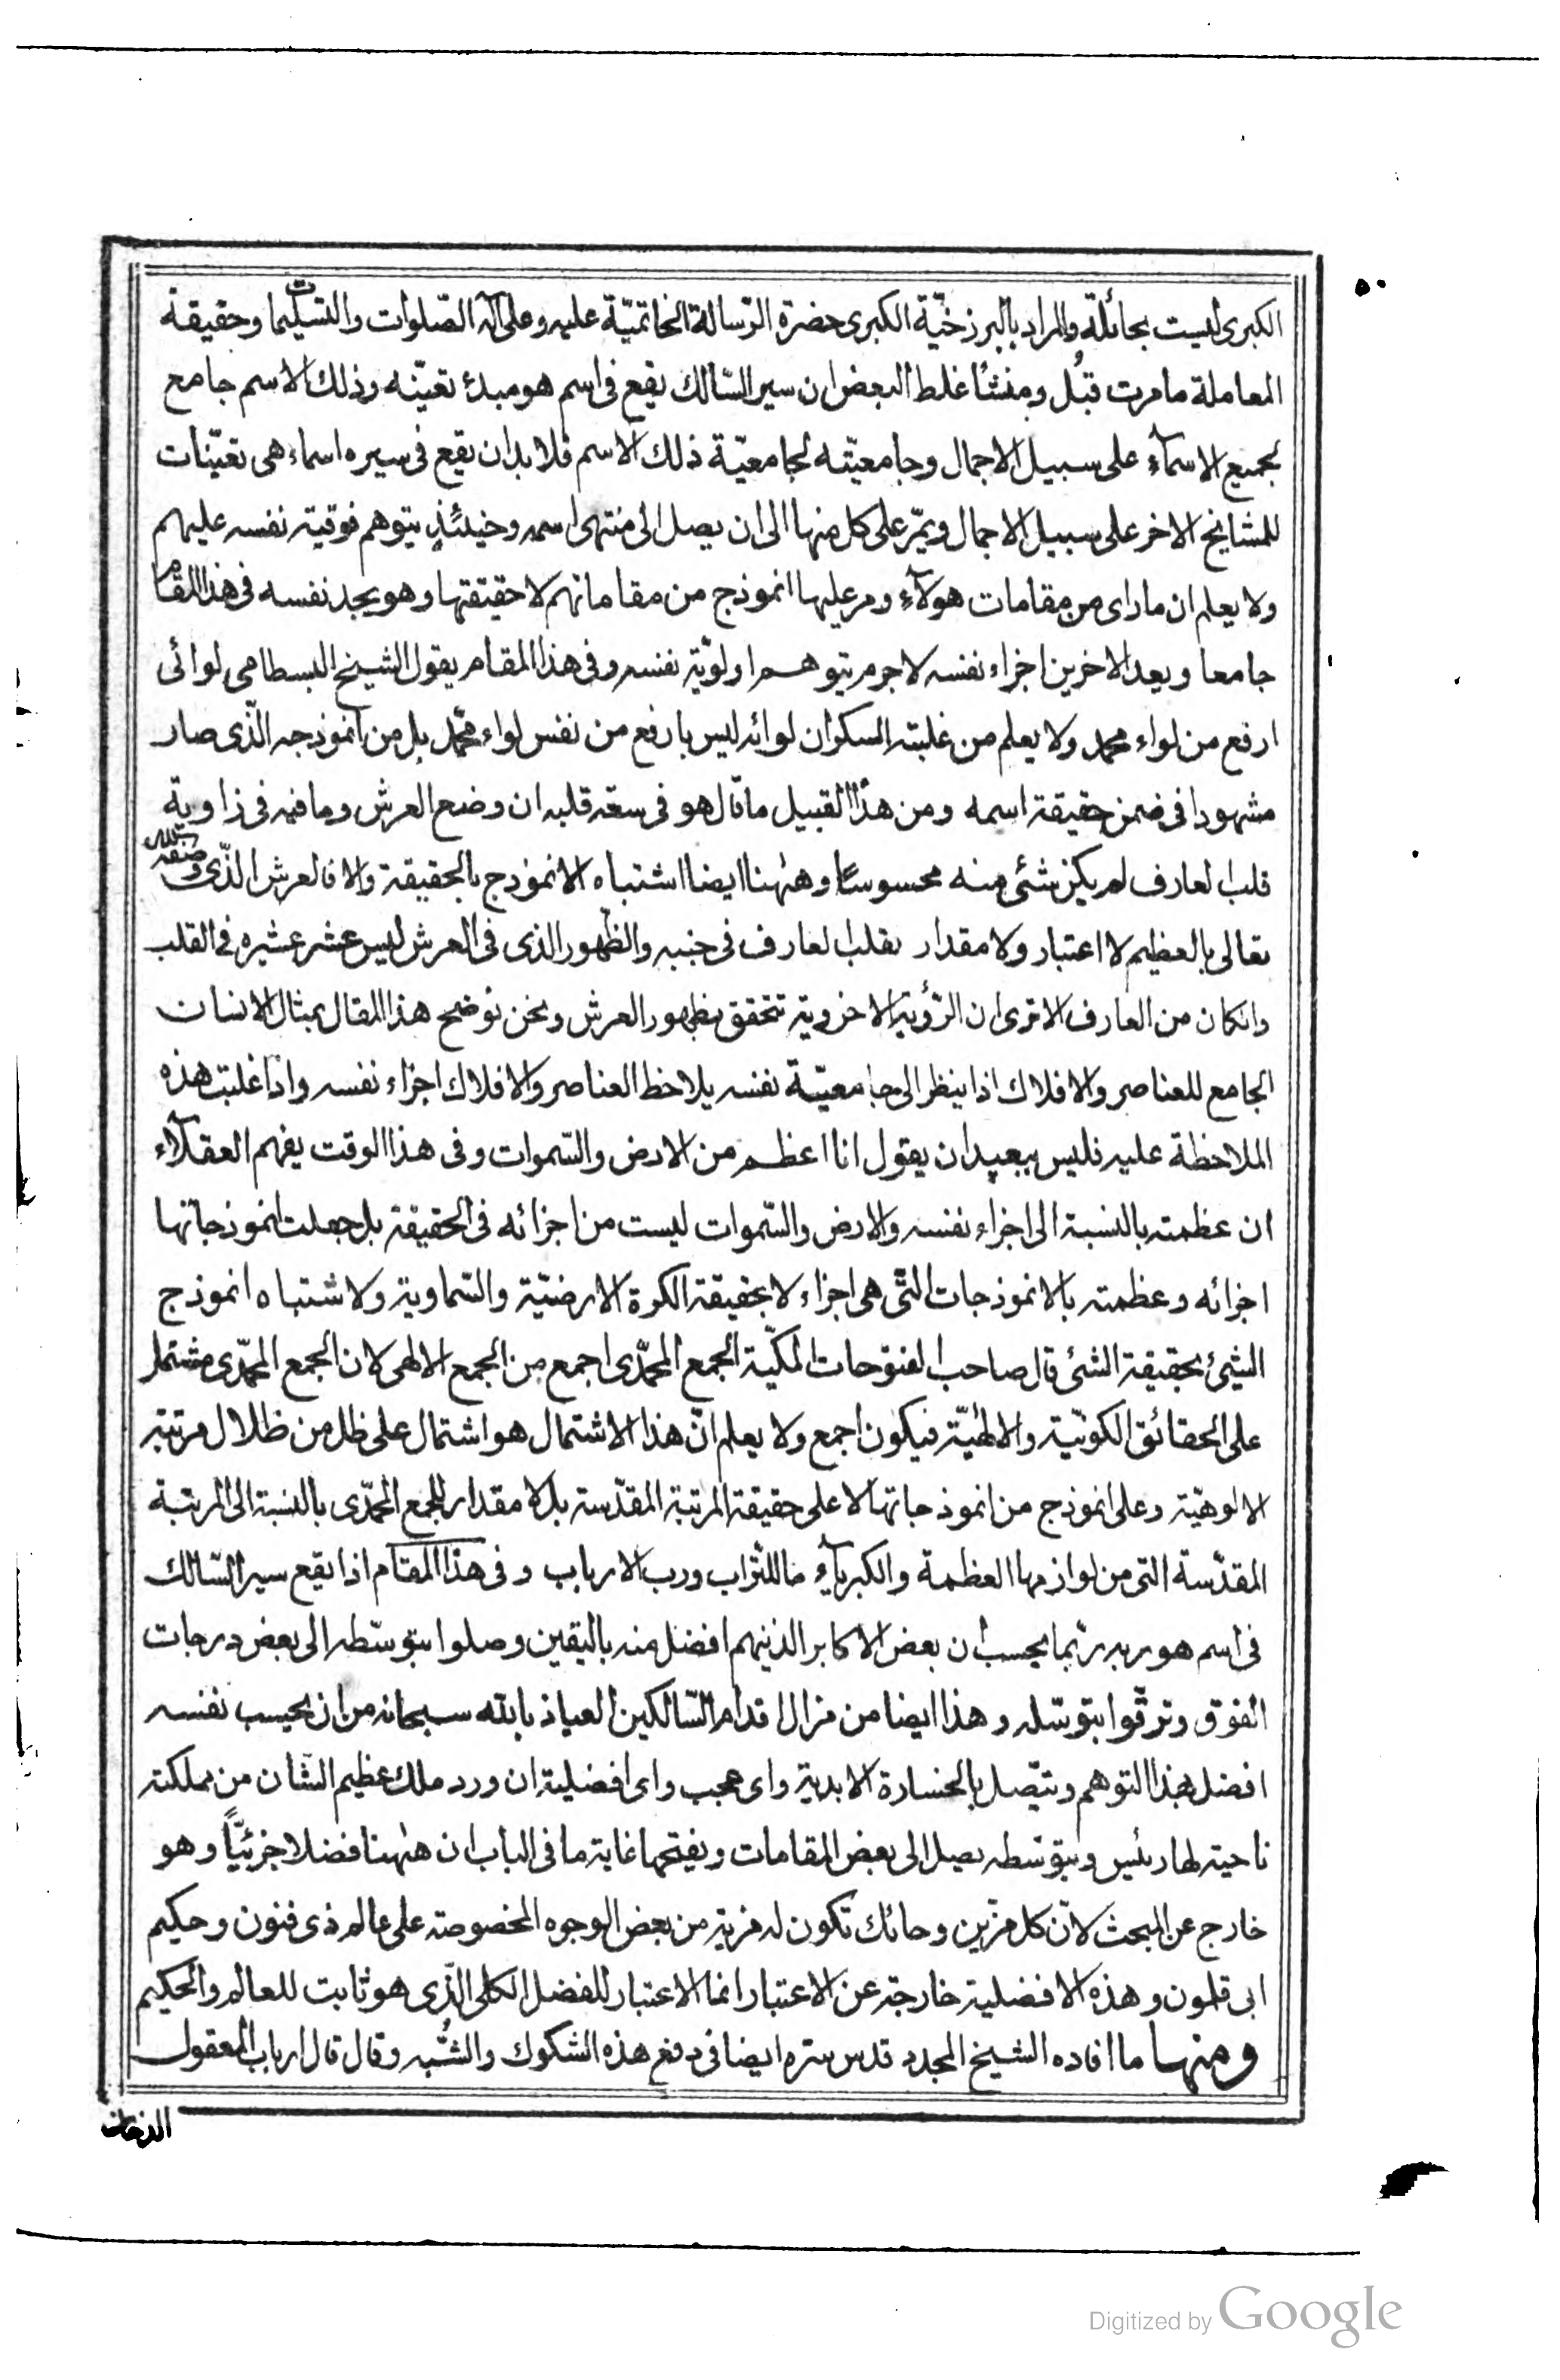 ٥٠
الكبرى ليست بحائلة والمراد بالبرزخيّة الكبرى حضرة الرّسالة الخاتميّة عليه وعلى آله الصّلوات والتسليمات وحقيقة
المعاملة ما مرت قبُل ومنشأ غلط البعض ان سير السّالك يقع فى اسم هو مبدء تعيّنه وذلك الاسم جامع
لجميع الاسمآء على سبيل الاجمال وجامعيّته لجامعيّة ذلك الاسم فلا بد ان يقع فى سيره اسماء هى تعيّنات
للمشايخ الاخر على سبيل الاجمال ويمّر على كل منها الى ان يصل الى منتهى اسمه وحينئذٍ يتوهم فوقية نفسه عليهم
ولا يعلم ان ما راى من مقامات هولآء ومر عليها انموذج من مقاماتهم لا حقيقتها وهو يجد نفسه فى هذا المقام
جامعا ويعد الاخرين اجزاء نفسه لاجرم يتوهم اولويّة نفسه وفى هذا المقام يقول الشيخ البسطامى لوائى
ارفع من لواء محمد ولا يعلم من غلبته السكران لوائه ليس بارفع من نفس لواء محمّد بل من انموذجه الّذى صار
مشهودا فى ضمن حقيقة اسمه ومن هذا القبيل ما قال هو فى سعة قلبه ان وضع العرش وما فيه فى زاوية
قلب العارف لم يكن شئى منه محسوسًا وههنا ايضا اشتباه الانموذج بالحقيقة والا فالعرش الّذى وصفه الله
تعالى بالعظيم لا اعتبار ولا مقدار لقلب العارف فى جنبه والظّهور الذى فى العرش ليس عشر عشيره فى القلب
وانكان من العارف الا ترى ان الرّؤية الاخروية تتحقق بظهور العرش ونحن نوضح هذا المقال بمثال الانسان
الجامع للعناصر والافلاك اذا ينظر الى جامعيّة نفسه يلاحظ العناصر والافلاك اجزاء نفسه واذا غلبت هذه
الملاحظة عليه فليس ببعيد ان يقول انا اعظم من الارض والسّموات وفى هذا الوقت يفهم العقلآء
ان عظمته بالنسبة الى اجزاء نفسه والارض والسّموات ليست من اجزائه فى الحقيقة بل جعلت انموذجاتها
اجزائه وعظمته بالانموذجات الّتى هى اجزاء لا بحقيقة الكرة الارضيّة والسّماوية ولاشتباه انموذج
الشيئ بحقيقة الشئى قال صاحب الفتوحات المكيّة الجمع المحمّدى اجمع من الجمع الالهى لان الجمع المحمّدى مشتمل
على الحقائق الكونيّة والالهيّة فيكون اجمع ولا يعلم انّ هذا الاشتمال هو اشتمال على ظل من ظلال مرتبة
الالوهيّة وعلى انموذج من انموذجاتها لا على حقيقة المرتبة المقدّسة بل لا مقدار للجمع المحمّدى بالنسبة الى المرتبة
المقدّسة التى من لوازمها العظمة والكبريآء ما للتراب ورب الارباب وفى هذا المقام اذا يقع سير السّالك
فى اسم هو ربه ربّما يحسب ان بعض الاكابر الذينهم افضل منه باليقين وصلوا بتوسّطه الى بعض درجات
الفوق وترقّوا بتوسّله وهذا ايضا من مزال اقدام السّالكين العياذ بالله سبحانه من ان يحسب نفسه
افضل بهذا التوهم ويتّصل بالخسارة الابدية واى عجب واى افضلية ان ورد ملك عظيم الشّان من مملكته
ناحية لها رئيس وبتوسّطه يصل الى بعض المقامات ويفتحها غاية ما فى الباب ان ههنا فضلا جزئيّاً وهو
خارج عن المبحث لانّ كل مزّين وحائك تكون له مزية من بعض الوجوه المخصوصة على عالم ذى فنون وحكيم
ابى قلمون وهذه الافضلية خارجة عن الاعتبار انما الاعتبار للفضل الكلى الّذى هو ثابت للعالم والحكيم
ومنها ما افاده الشيخ المجدد قدس سره ايضا فى دفع هذه الشكوك والشُّبه وقال قال ارباب المعقول
Digitized by Google